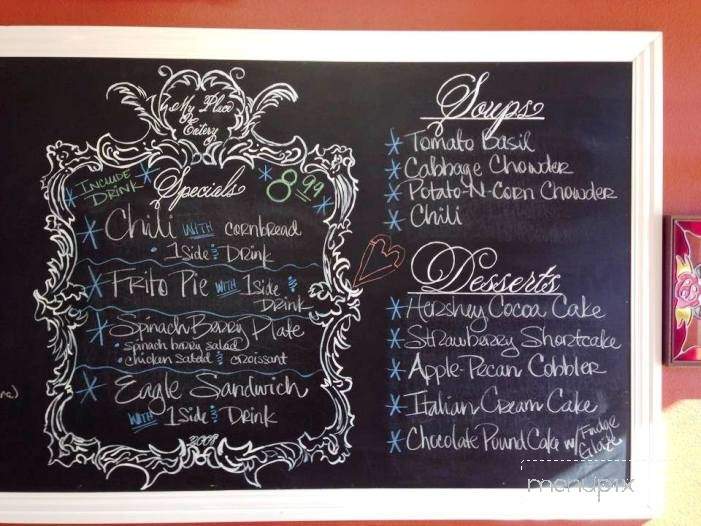 My Place
Eatery
INCLUDE
DRINK
Specials
8.99
Chili WITH CORNBREAD
1 Side & DRINK
FRITO PIE WITH 1 Side &
DRINK
Spinach Berry Plate
• Spinach berry salad
• chicken salad & croissant
Eagle Sandwich
WITH 1 Side & DRINK
2009
Soups
Tomato Basil
Cabbage Chowder
Potato-N-Corn Chowder
Chili
Desserts
Hershey Cocoa Cake
Strawberry Shortcake
Apple-Pecan Cobbler
Italian Cream Cake
Chocolate Pound Cake w/ Fudge
Glaze
menupix